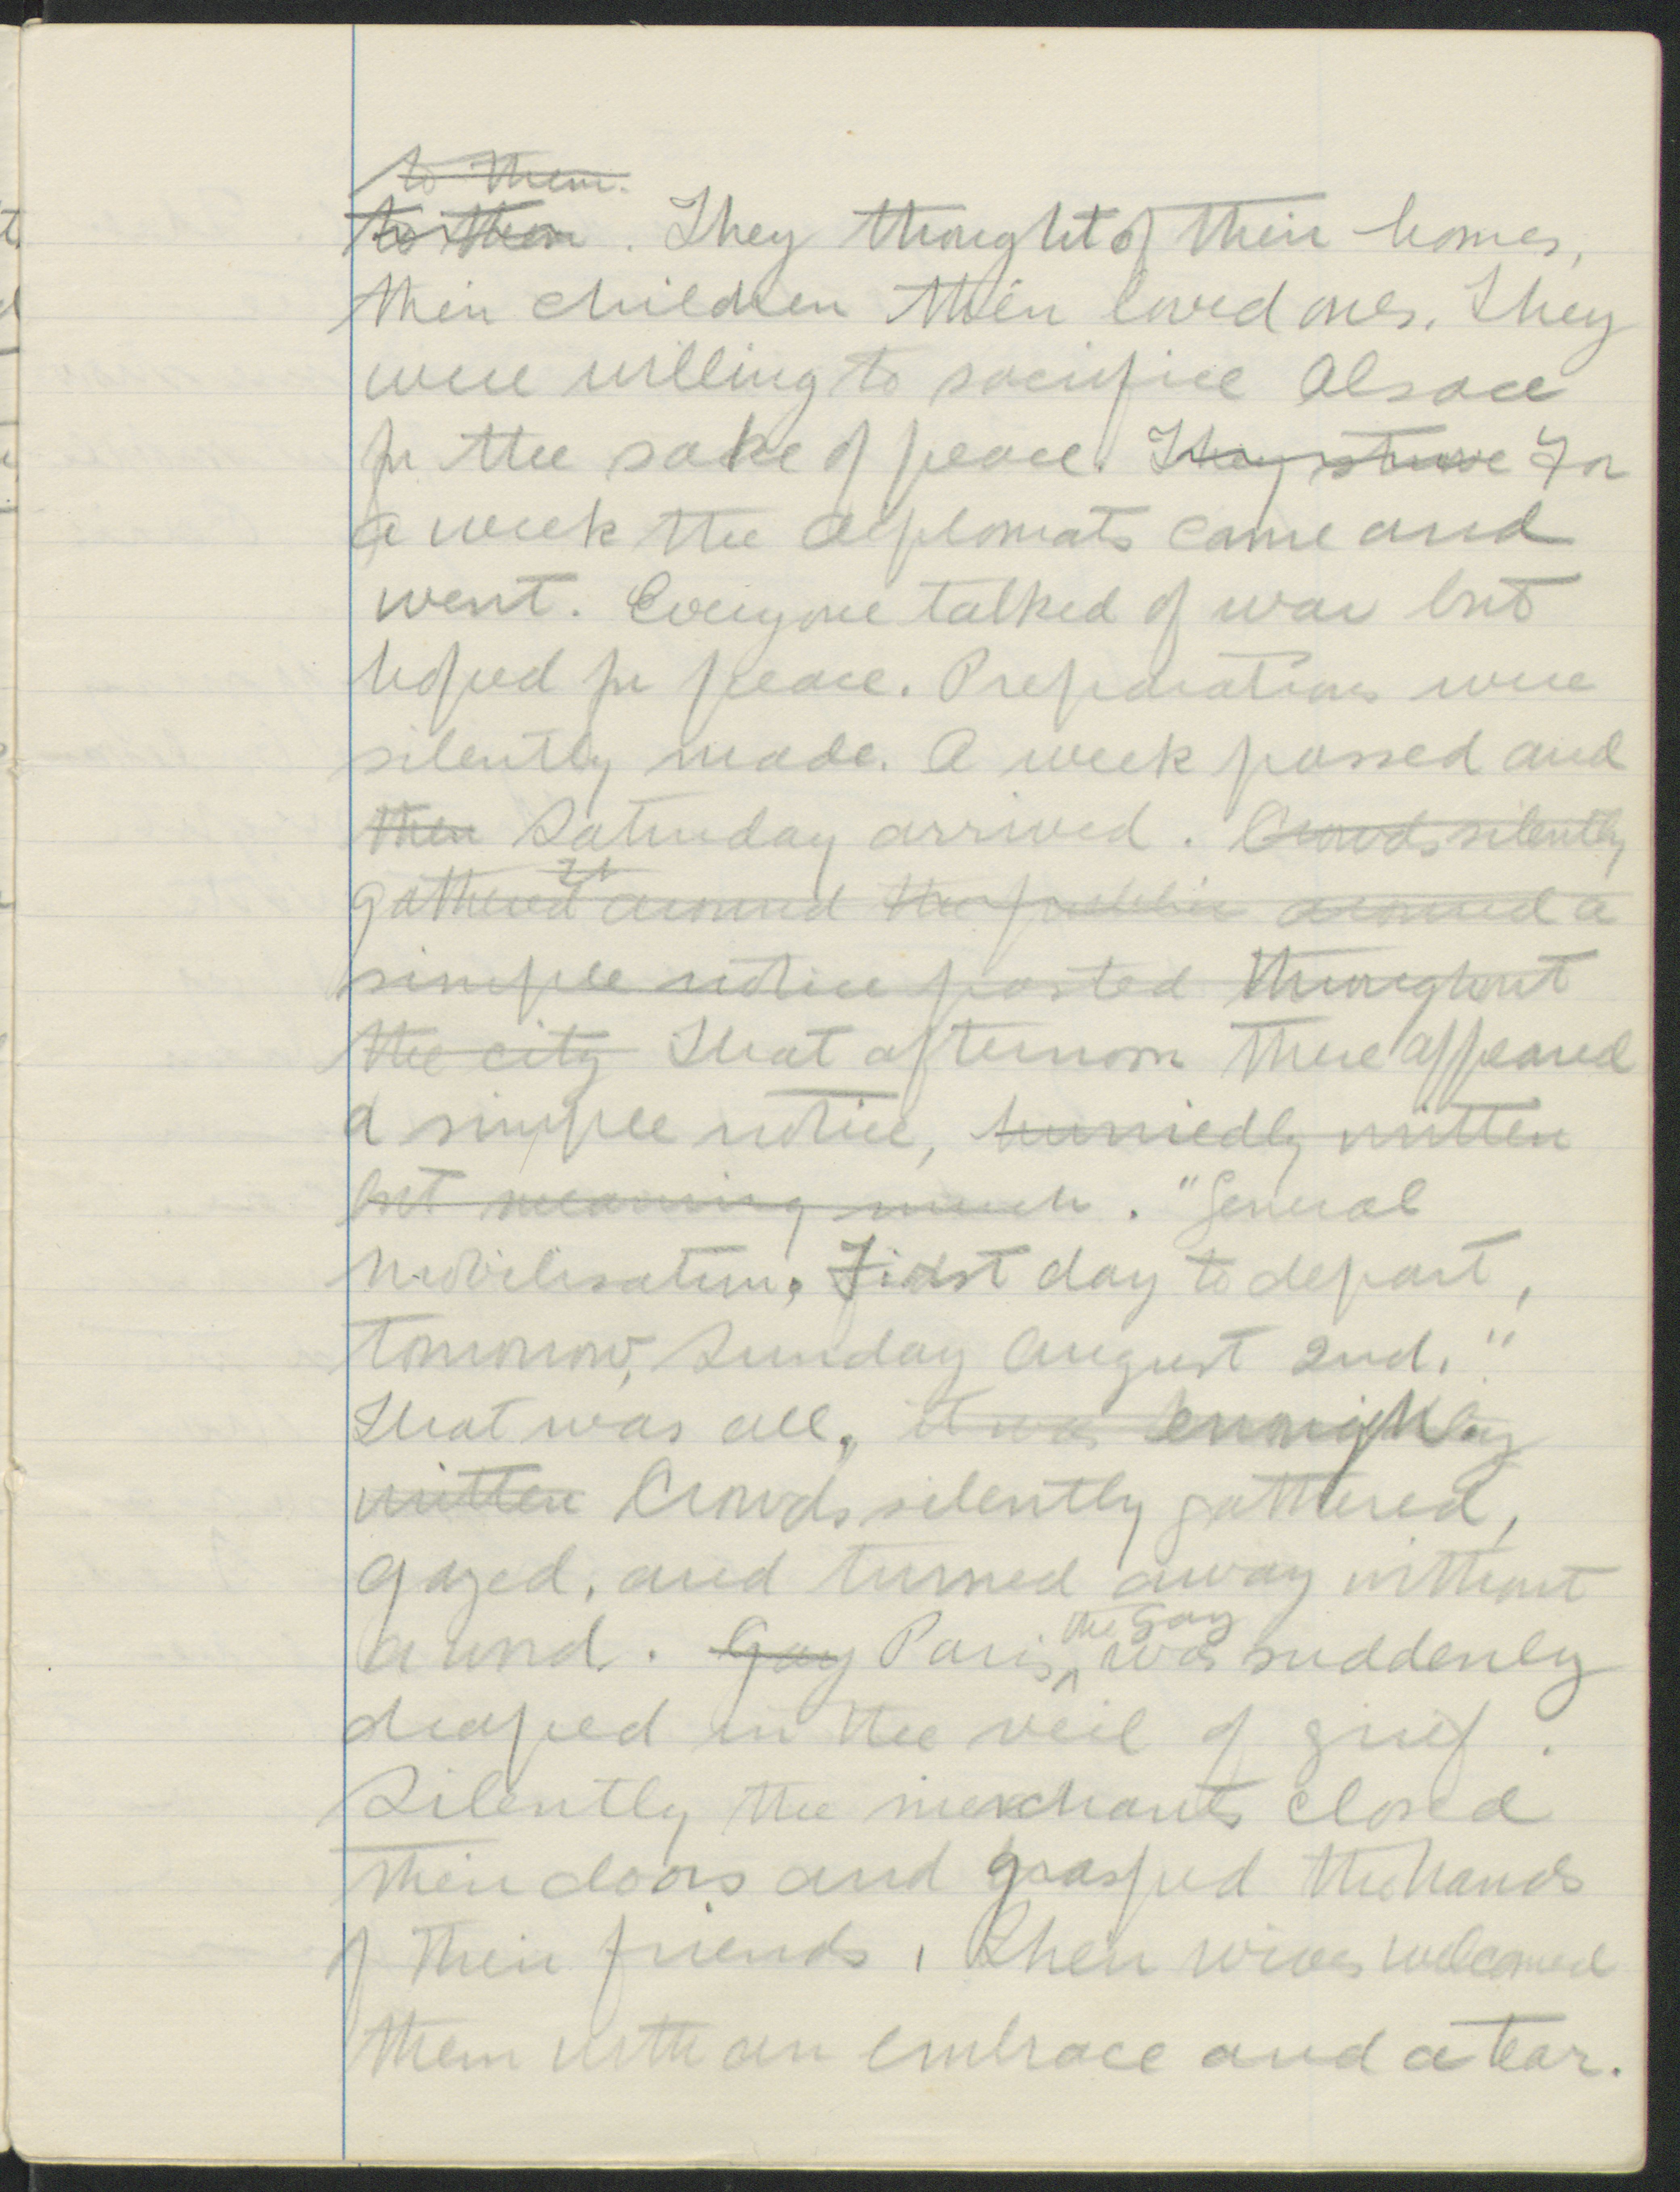 to them.
to them. They thought of their homes,
their children their loved ones. They
were willing to sacrifice Alsace
for the sake of peace. They strove For
a week the diplomats came and
went. Everyone talked of war but
hoped for peace. Preparations were
silently made. A week passed and
then Saturday arrived. Crowds silently
gathered around the public around a
simple notice posted throughout
the city That afternoon there appeared
a simple notice, hurriedly written
but meaning much. "General
Mobilisation. First day to depart,
tomorrow, Sunday August 2nd."
That was all. it was
written Crowds silently gathered,
gazed, and turned away without
a word. Gay Paris, the gay was suddenly
draped in the veil of grief.
Silently the merchants closed
their doors and grasped the hands
of their friends. Their wives welcomed
them with an embrace and a tear.